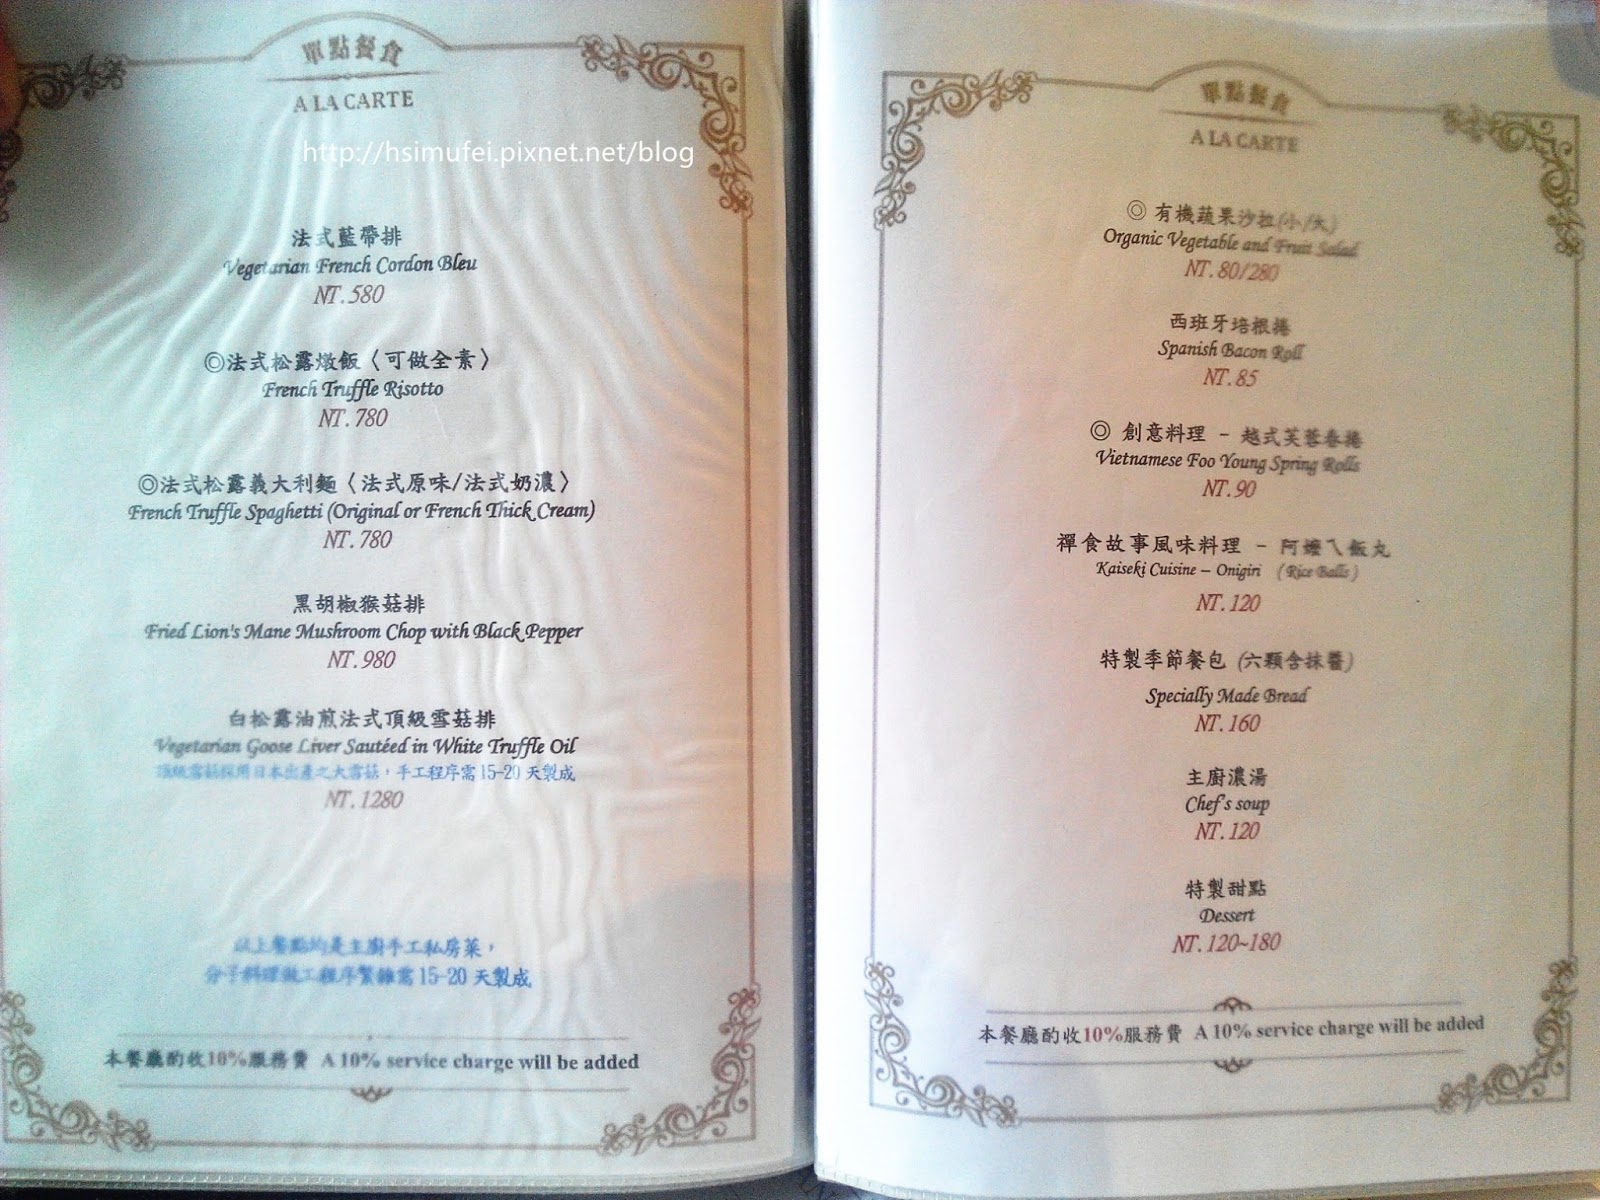 單點餐食
A LA CARTE
http://hsimufei.pixnet.net/blog
法式藍帶排
Vegetarian French Cordon Bleu
NT.580
◎法式松露燉飯〈可做全素〉
French Truffle Risotto
NT.780
◎法式松露義大利麵〈法式原味/法式奶濃〉
French Truffle Spaghetti (Original or French Thick Cream)
NT.780
黑胡椒猴菇排
Fried Lion's Mane Mushroom Chop with Black Pepper
NT.980
白松露油煎法式頂級雪菇排
Vegetarian Goose Liver Sautéed in White Truffle Oil
頂級雪菇採用日本出產之大雪菇，手工程序需 15-20 天製成
NT.1280
以上餐點均是主廚手工私房菜，
分子料理做工程序繁雜需 15-20 天製成
本餐廳酌收10%服務費 A 10% service charge will be added
單點餐食
A LA CARTE
◎ 有機蔬果沙拉(小/大)
Organic Vegetable and Fruit Salad
NT.80/280
西班牙培根捲
Spanish Bacon Roll
NT.85
◎ 創意料理 - 越式芙蓉春捲
Vietnamese Foo Young Spring Rolls
NT.90
禪食故事風味料理 - 阿嬤ㄟ飯丸
Kaiseki Cuisine – Onigiri (Rice Balls)
NT.120
特製季節餐包 (六顆含抹醬)
Specially Made Bread
NT.160
主廚濃湯
Chef's soup
NT.120
特製甜點
Dessert
NT.120~180
本餐廳酌收10%服務費 A 10% service charge will be added